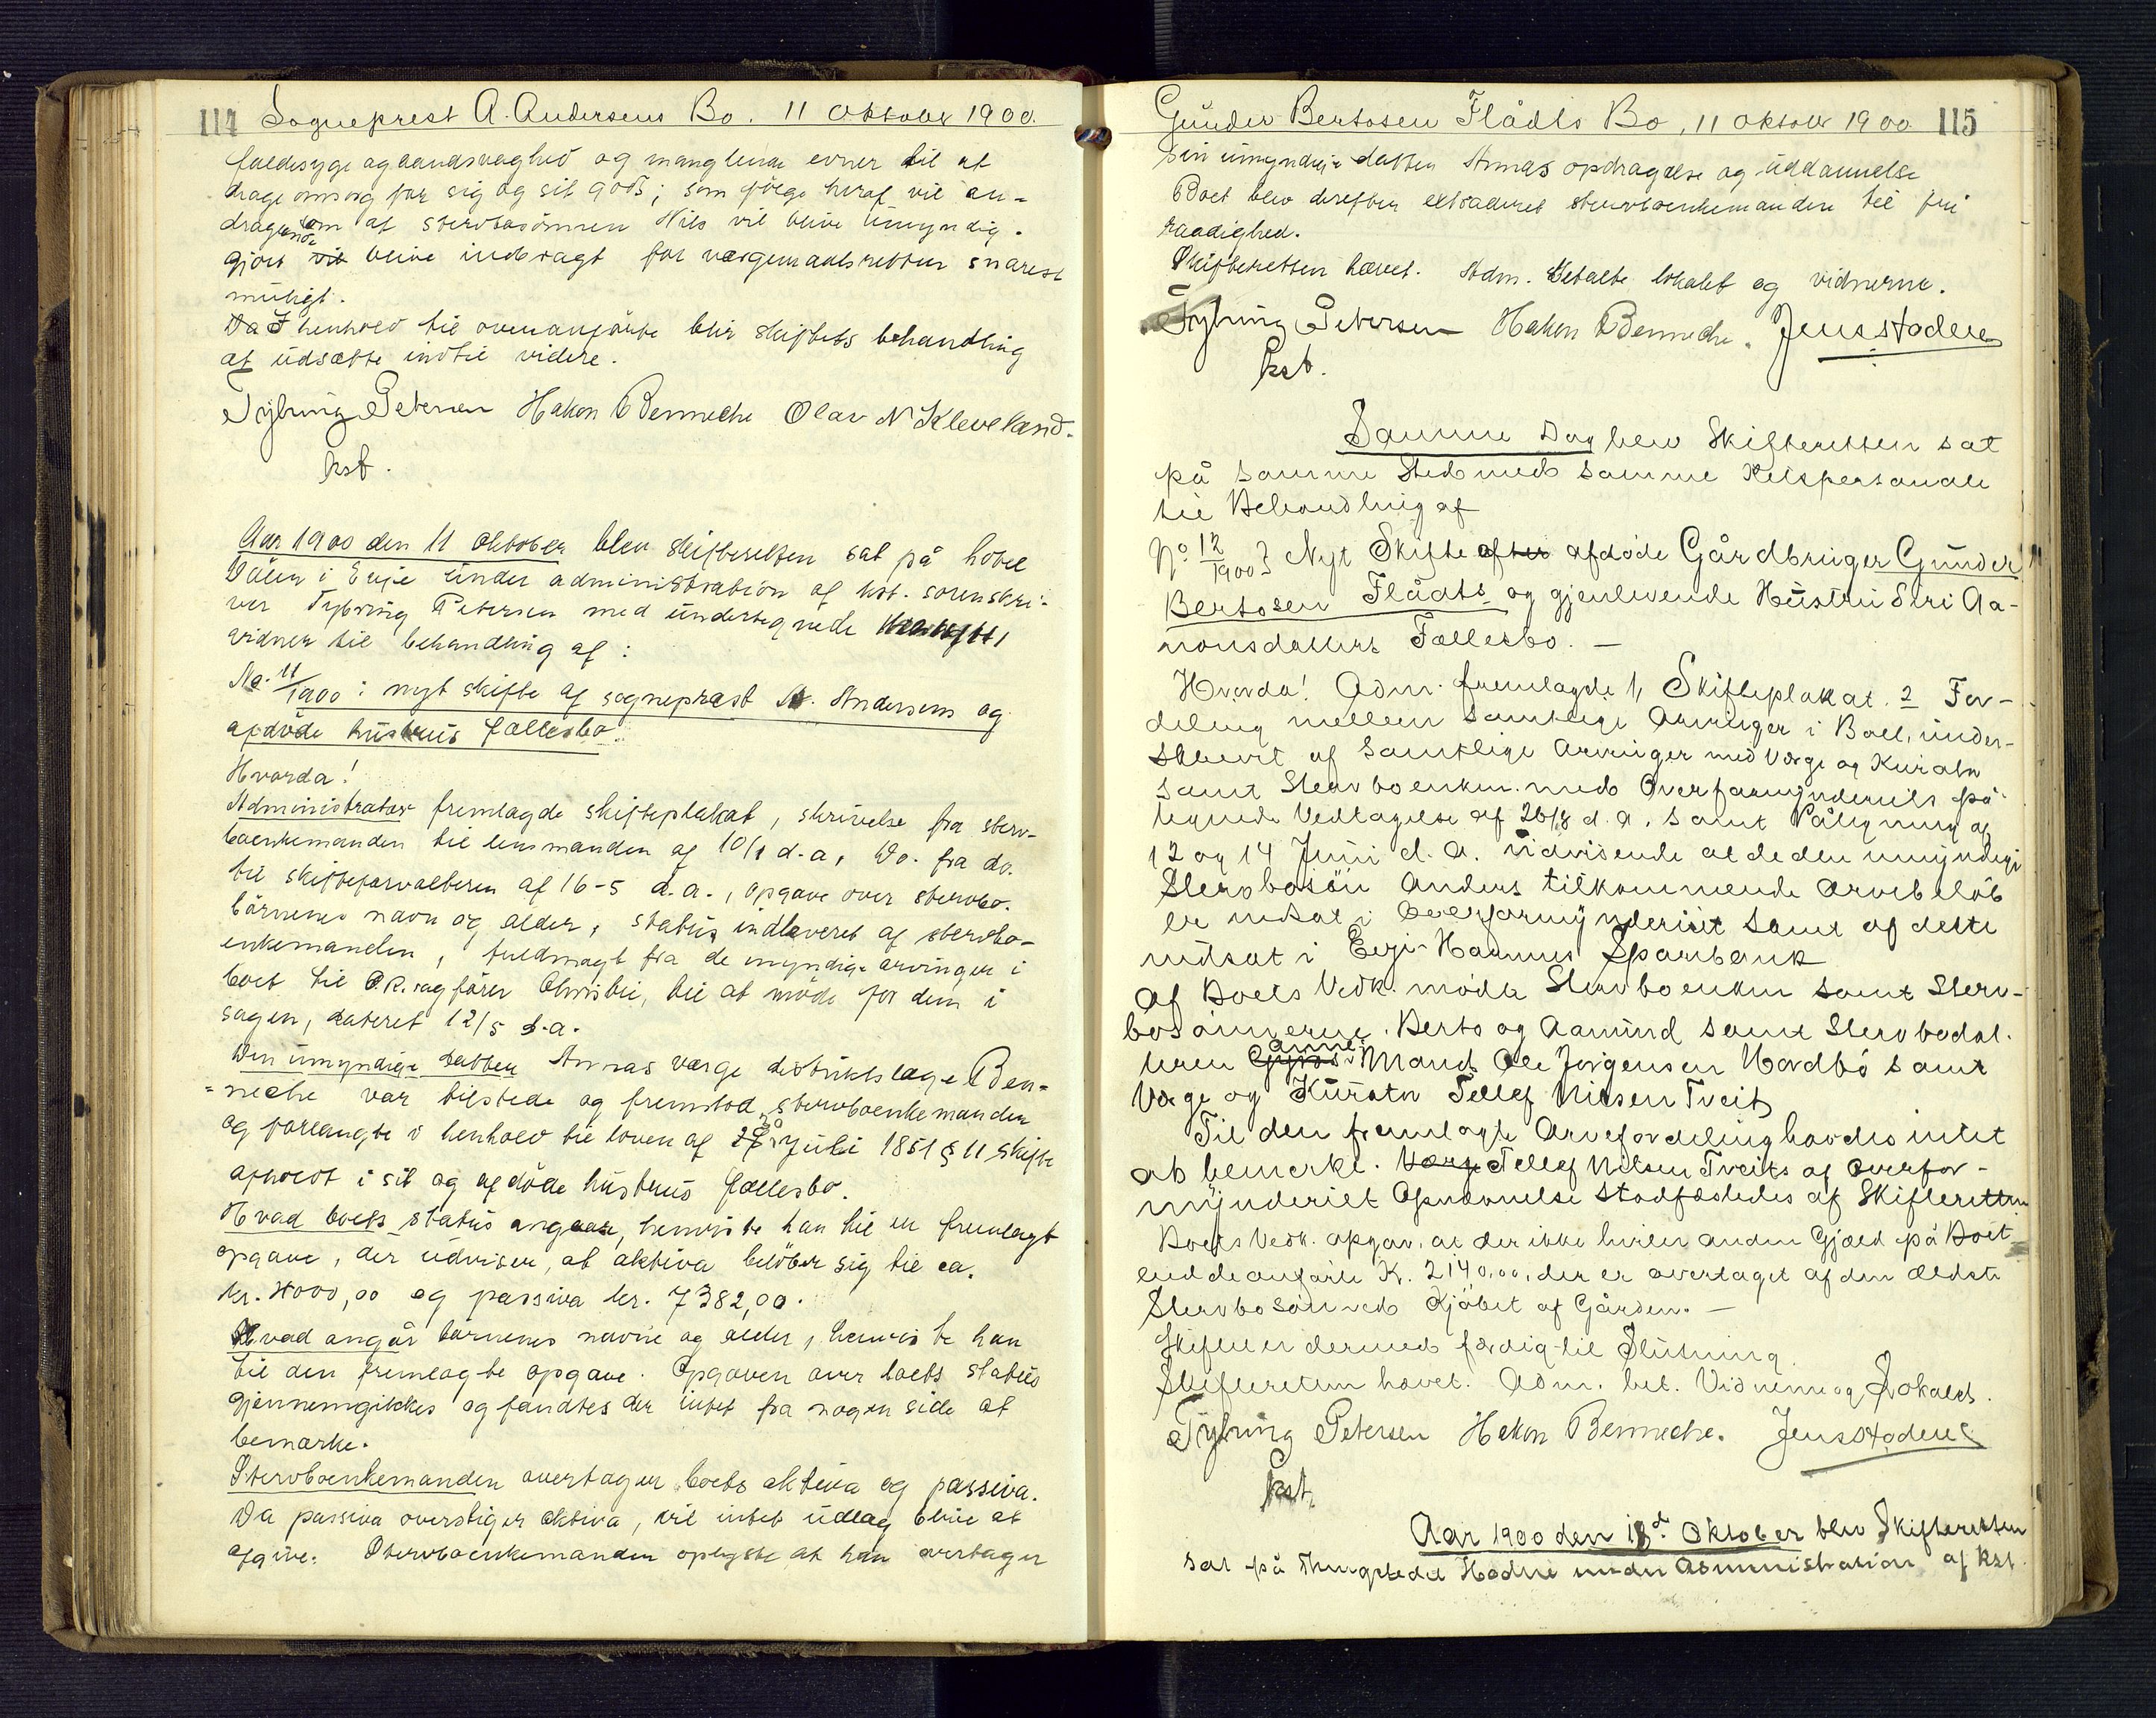 114 Sogneprest A. Andersens Bo. 11 Oktober 1900.
faldesyge og aandssvaghed og manglende evner til at
drage omsorg for sig og sit gods; som følge heraf vil an-
dragende om at stervbosønnen Nils vil blive umyndig-
gjort vil blive indbragt for værgemaalsretten snarest
muligt.
Da I henhold til ovenanførte blir skiftets behandling
at udsætte indtil videre.
Tybring Petersen Hakon Benneche Olav N Kleveland.
kst.
Aar 1900 den 11 oktober blev skifteretten sat på hotel
Dålen i Evje under administration af kst. sorenskri-
ver Tybring Petersen med undertegnede
vidner til behandling af:
No. 11/1900: nyt skifte af sogneprest A. Andersens og
afdøde hustrus fællesbo.
Hvorda!
Administrator fremlagde skifteplakat, skrivelse fra sterv-
boenkemanden til lensmanden af 10/1 d.a., Do. fra do.
til skifteforvalteren af 16-5 d.a., opgave over stervbo-
børnenes navn og alder, status indleveret af stervbo-
enkemanden, fuldmagt fra de myndige arvinger i
boet til O.R.sagfører Christie, til at møde for dem i
sagen, dateret 12/5 d.a.
Den umyndige datter Annas værge distriktslæge Ben-
neche var tilstede og fremstod stervboenkemanden
og forlangte i henhold til loven af 30 juli 1851 § 11 skifte
afholdt i sit og afdøde hustrus fællesbo.
Hvad boets status angaar, henviste han til en fremlagt
opgave, der udviser, at aktiva beløber sig til ca.
kr. 4000,00 og passiva kr. 7382,00.
Hvad angår børnenes navne og alder, henviste han
til den fremlagte opgave. Opgaven over boets status
gjennemgikkes og fandtes der intet fra nogen side at
bemærke.
Stervboenkemanden overtager boets aktiva og passiva.
Da passiva overstiger aktiva, vil intet udlæg blive at
afgive. Stervboenkemanden oplyste at han overtager
Gunder Bertosen Flådts Bo, 11 oktober 1900. 115
sin umyndige datter Annas opdragelse og uddannelse
Boet blev derefter extraderet stervboenkemanden til fri
raadighed.
Skifteretten hævet. Adm. betalte lokalet og vidnerne.
Tybring Petersen Hakon Benneche. Jens Stadene
kst.
Samme Dag blev Skifteretten sat
på samme Sted med samme Retspersonale
til Behandling af
No 12/1900: Nyt Skifte efter afdøde Gårdbruger Gunder
Bertosen Flådts og gjenlevende Hustru Siri Aa-
nonsdatters Fællesbo. —
Hvorda! Adm. fremlagde 1, Skifteplakat. 2 For-
deling mellem samtlige Arvinger i Boet, under-
skrevet af samtlige Arvinger med Værge og Kurator
samt Stervboenken med Overformynderiets på-
tegnede Vedtagelse af 26/8 d.a. samt Påtegning af
12 og 14 Juni d.a. udvisende at de den umyndige
Stervbosøn Anders tilkommende Arvebeløb
er indsat i Overformynderiet samt af dette
indsat i Evje-Hornnes Sparebank
Af Boets Vedk. mødte Stervboenken samt Sterv-
bosønnerne Berto og Aamund samt Stervbodat-
teren Gyros Anne Mand Ole Jørgensen Hordbø samt
Værge og Kurator Tellef Nilsen Tveit
Til den fremlagte Arvefordeling havdes intet
at bemerke. Værge Tellef Nilsen Tveits af Overfor-
mynderiet Opnævnelse stadfæstedes af Skifteretten
Boets Vedk. opgav, at der ikke hviler anden Gjæld på Boet
end de anførte Kr. 2140,00, der er overtaget af den ældste
Stervbosøn ved Kjøbet af Gården. —
Skiftet er dermed færdig til Slutning.
Skifteretten hævet. Adm. bet. Vidnerne og Lokalet.
Tybring Petersen Hakon Benneche. Jens Stadene
kst.
Aar 1900 den 18d Oktober blev Skifteretten
sat på Thingstedet Hodne under Administration af kst.